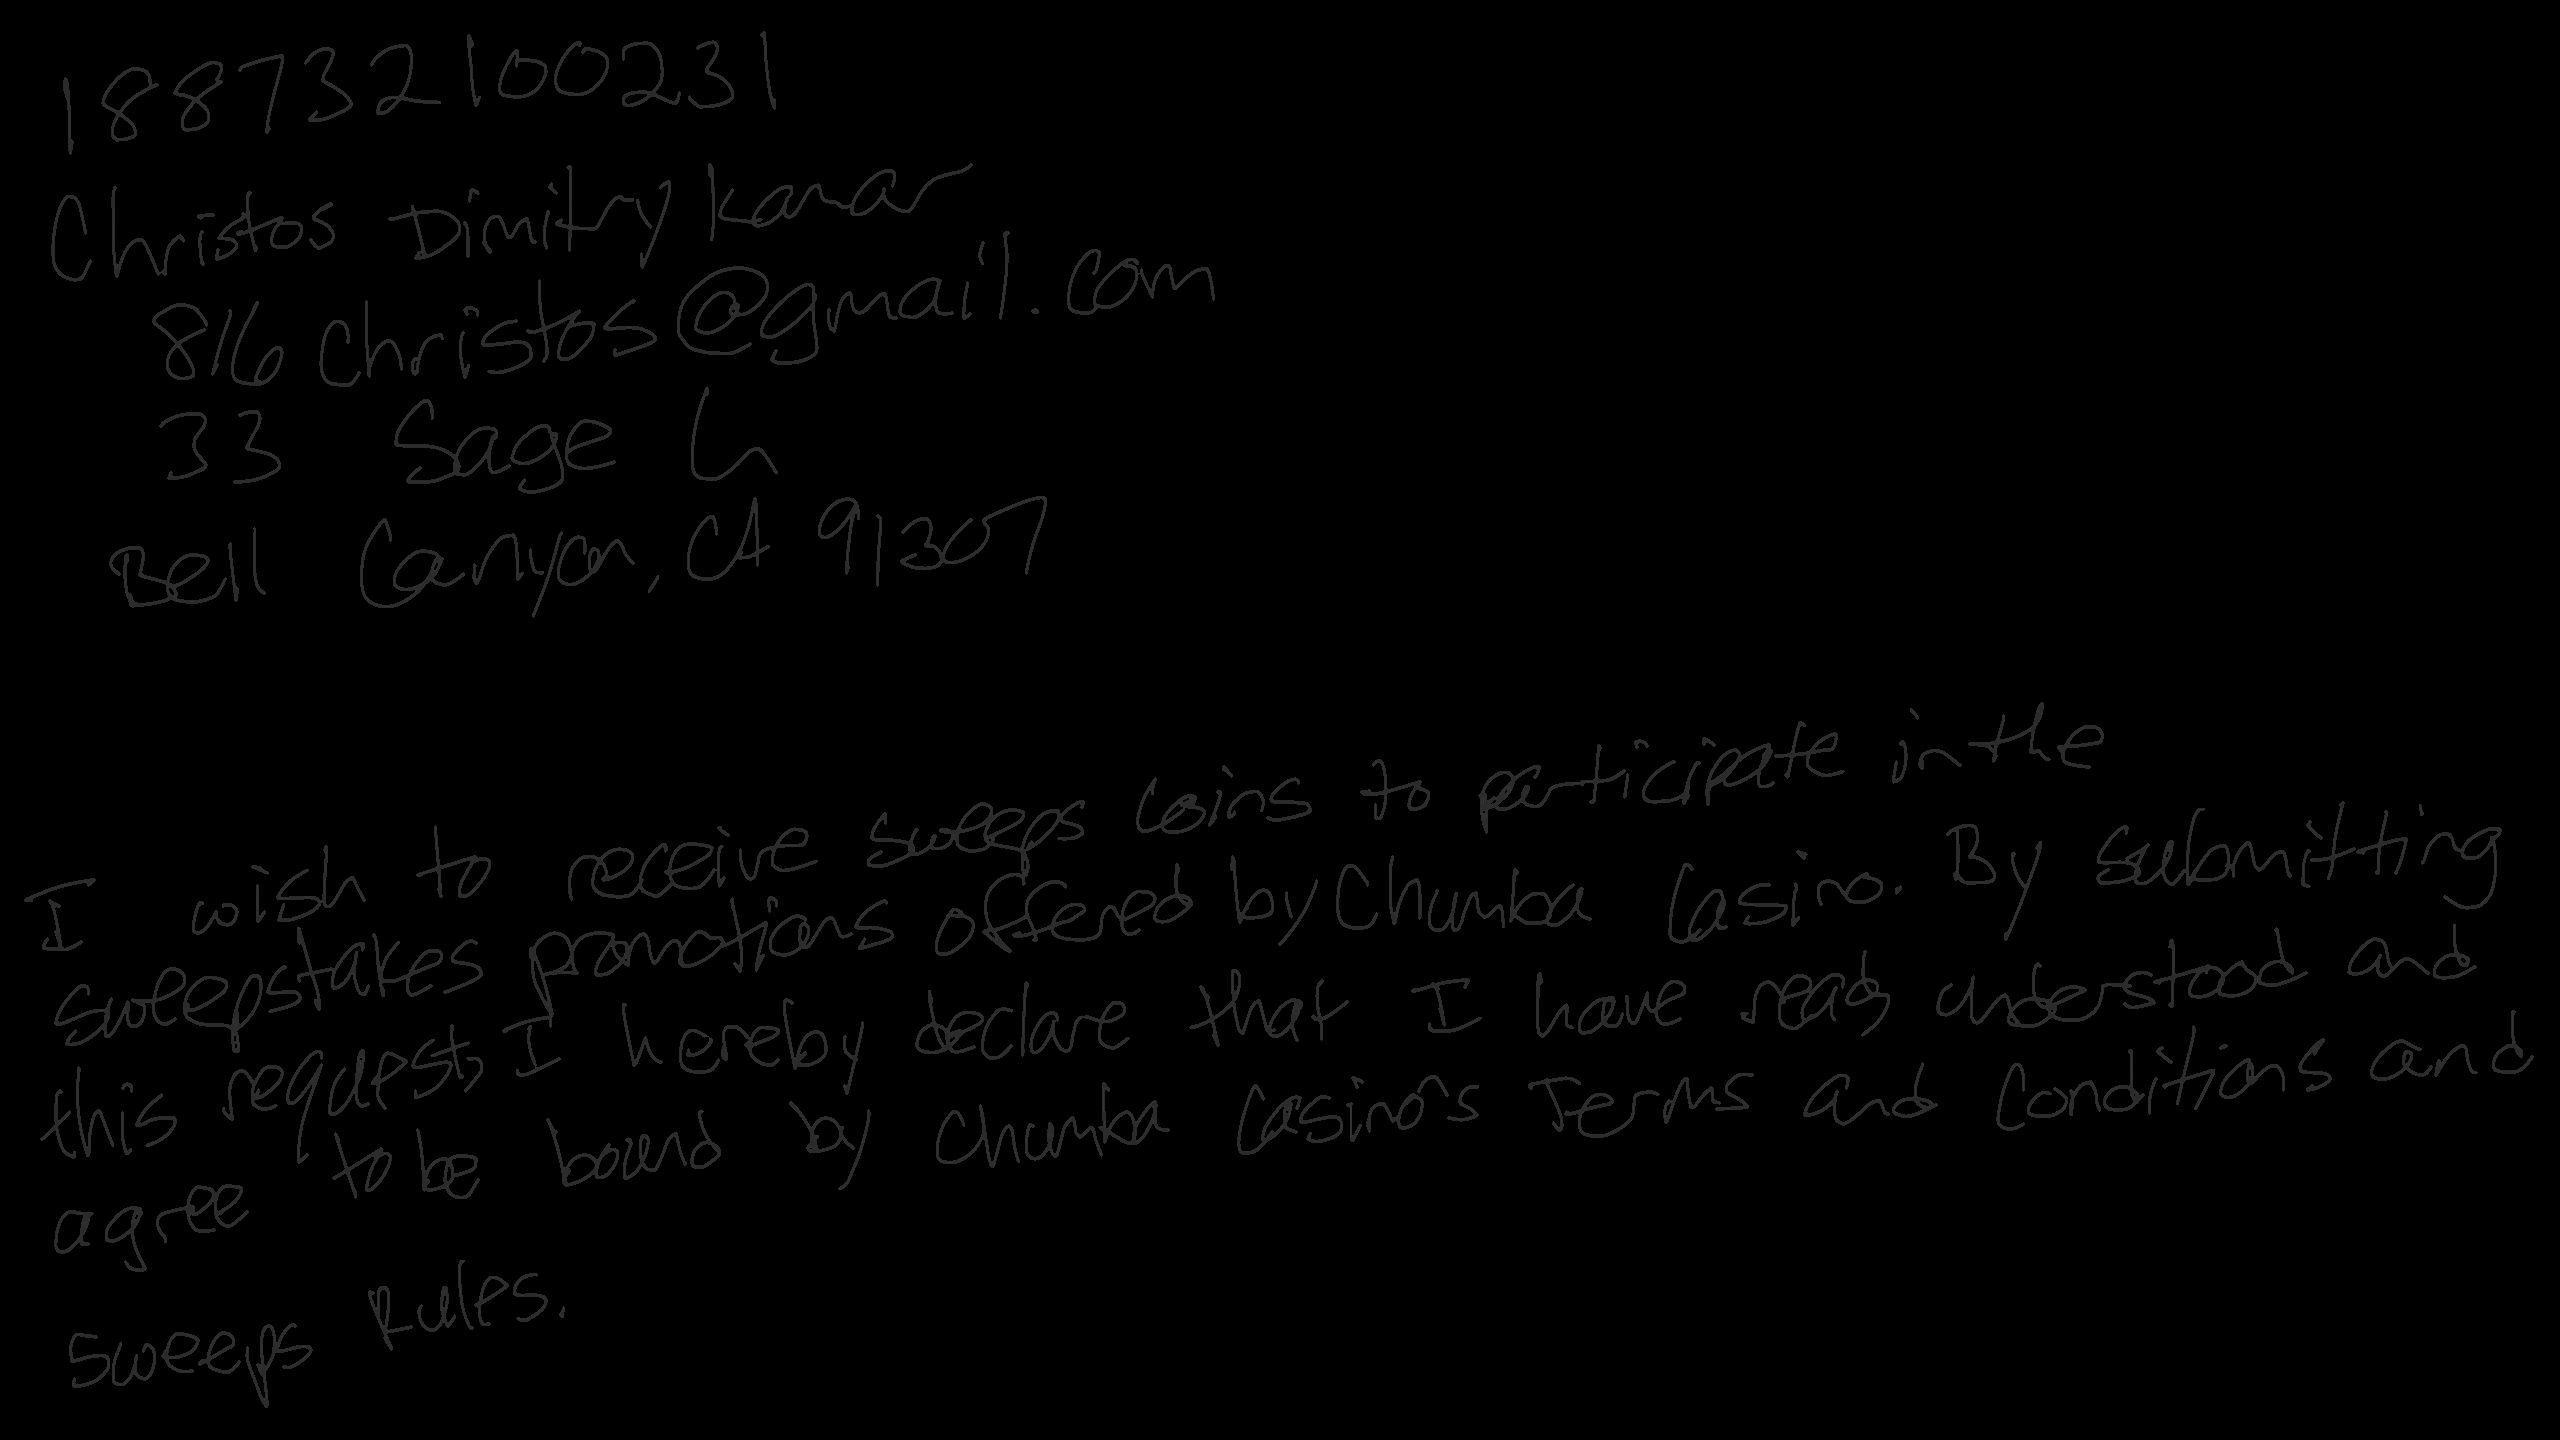 188732100231
Christos Dimitry Kanar
816christos@gmail.com
33 Sage Ln
Bell Canyon, CA 91307
I wish to receive sweeps coins to participate in the
sweepstakes promotions offered by Chumba Casino. By submitting
this request, I hereby declare that I have read, understood and
agree to be bound by Chumba Casino's Terms and Conditions and
Sweeps Rules.